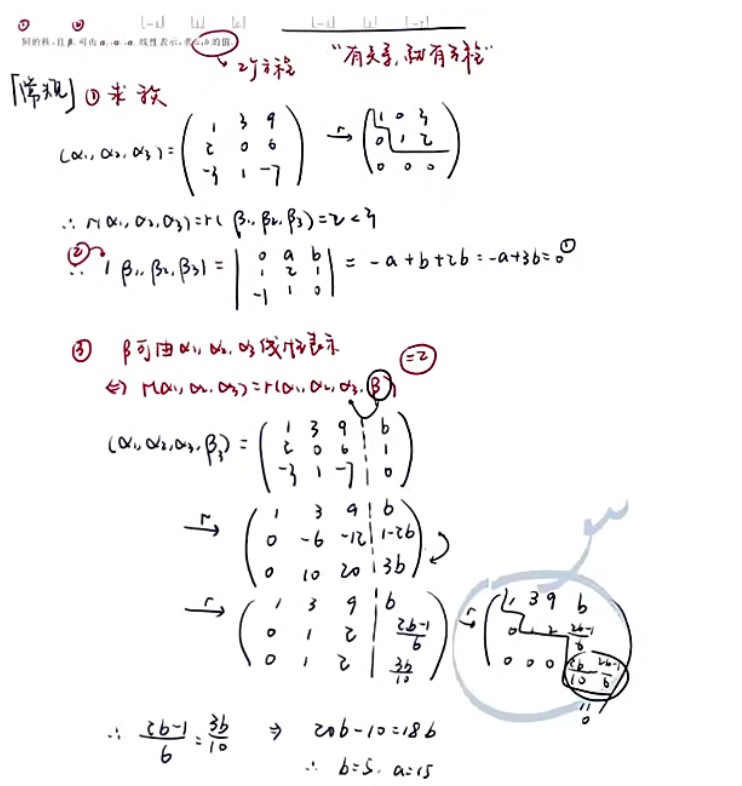 ① ②
同的秩,且β₃可由α₁,α₂,α₃线性表示,求a,b的值.
2个方程 "有关系,就有方程"
「常规」① 求秩
(α₁, α₂, α₃) = ( 1 3 9 → r ( 1 0 3
2 0 6 0 1 2
-3 1 -7 ) 0 0 0 )
∴ r(α₁, α₂, α₃) = r( β₁, β₂, β₃) = 2 < 3
② ∴ | β₁, β₂, β₃| = | 0 a b
1 2 1
-1 1 0 | = -a + b + 2b = -a+3b = 0 ①
③ β可由α₁, α₂, α₃线性表示 =2
⇔ r(α₁, α₂, α₃) = r(α₁, α₂, α₃, β)
(α₁, α₂, α₃, β₃) = ( 1 3 9 | b
2 0 6 | 1
-3 1 -7 | 0 )
r → ( 1 3 9 | b
0 -6 -12 | 1-2b
0 10 20 | 3b )
r → ( 1 3 9 | b
0 1 2 | 2b-1/6
0 1 2 | 3b/10 )
r → ( 1 3 9 b
0 1 2 2b-1/6
0 0 0 3b/10 - 2b-1/6 )
"
0
∴ 2b-1/6 = 3b/10 ⇒ 20b-10 = 18b
∴ b=5, a=15